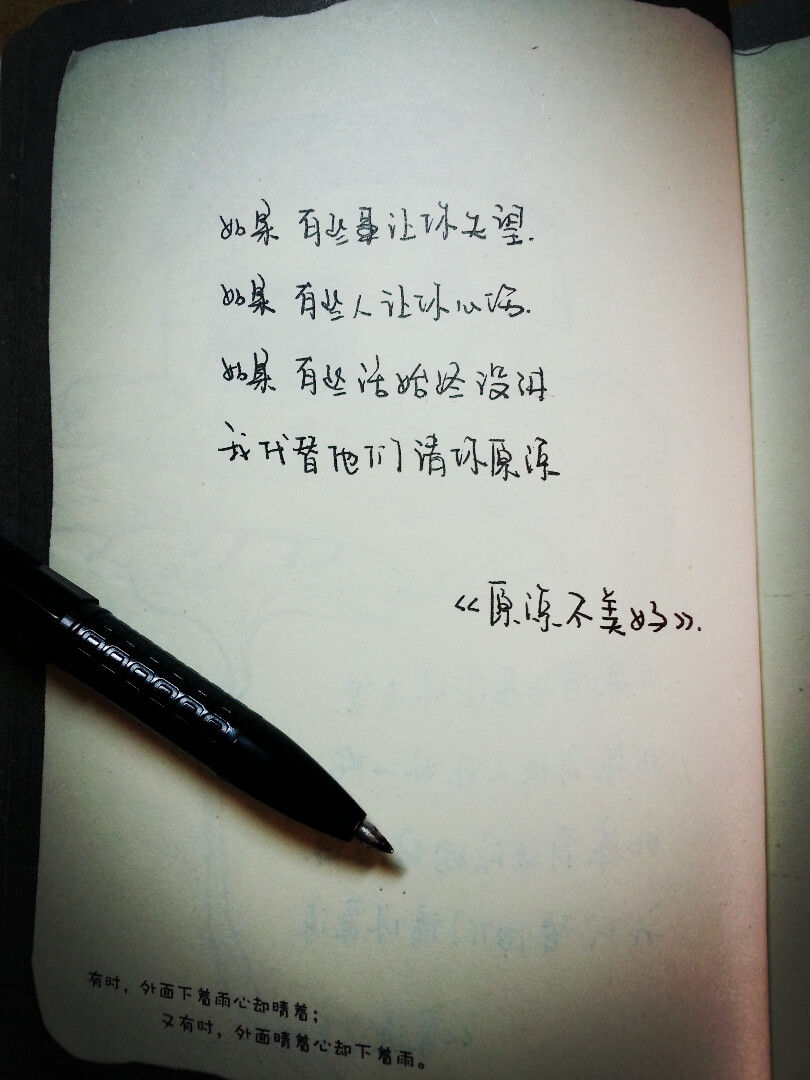 如果 有些事让你失望.
如果 有些人让你心伤.
如果 有些话始终没讲
我代替他们请你原谅
《原谅不美好》.
有时，外面下着雨心却晴着；
又有时，外面晴着心却下着雨。